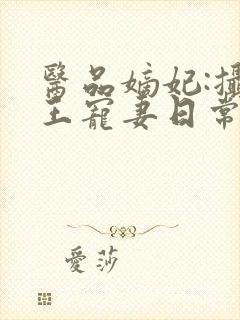 醫品嫡妃:攝
王寵妻日常
愛莎